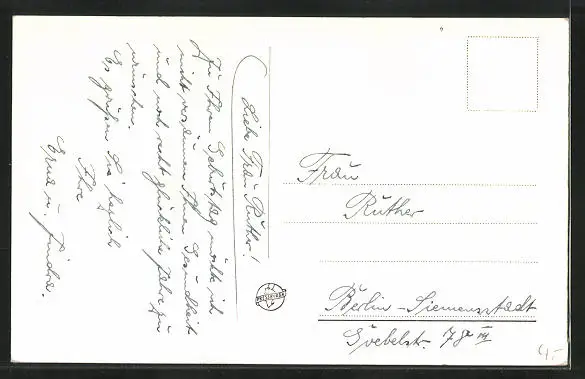 Liebe Frau Ruther!
Zu Ihrem Geburtstag möchte ich
nicht versäumen Ihnen Gesundheit
und noch recht glückliche Jahre zu
wünschen.
Es grüßen Sie herzlich
Ihre
Erna u.
Frau
Ruther
Berlin-Siemensstadt
Goebelstr.
4,-